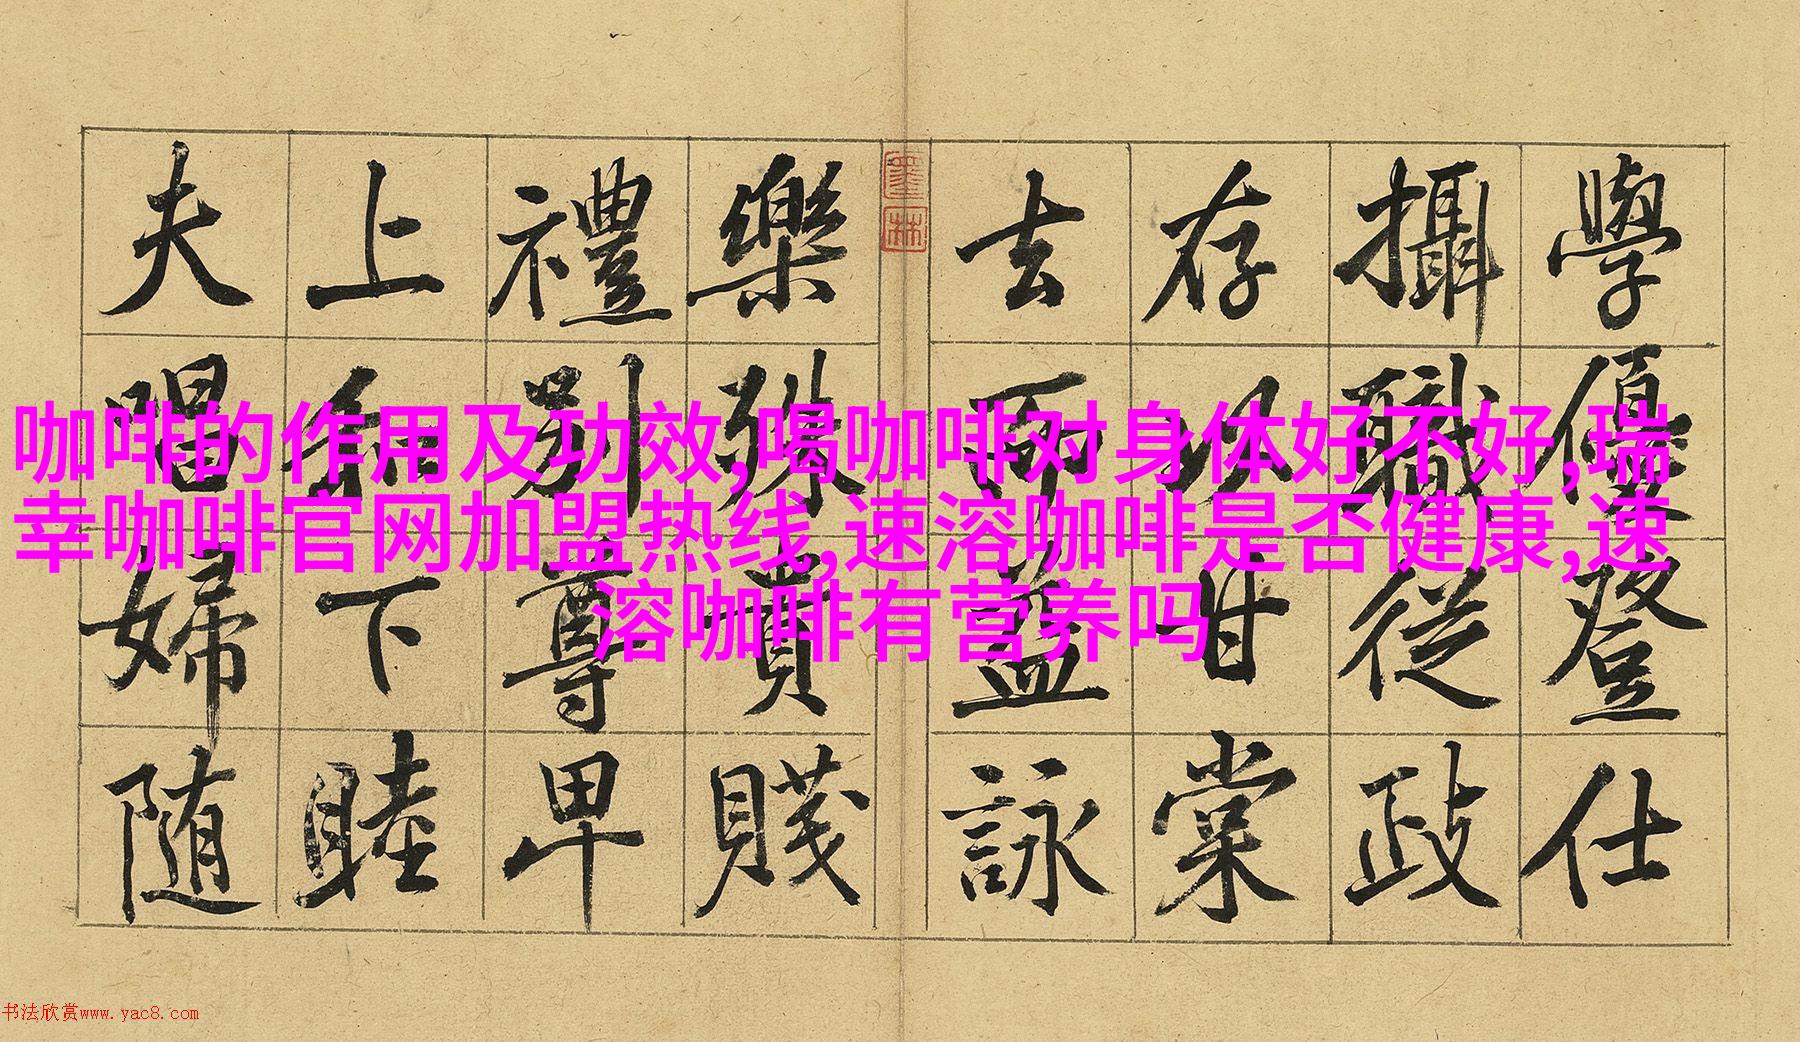 咖啡的作用及功效,喝咖啡对身体好不好,瑞
幸咖啡官网加盟热线,速溶咖啡是否健康,速
溶咖啡有营养吗
學優登仕
攝職從政
存以甘棠
去而益詠
樂殊貴賤
禮別尊卑
上和下睦
夫唱婦随
墨林
书法欣赏www.yac8.com